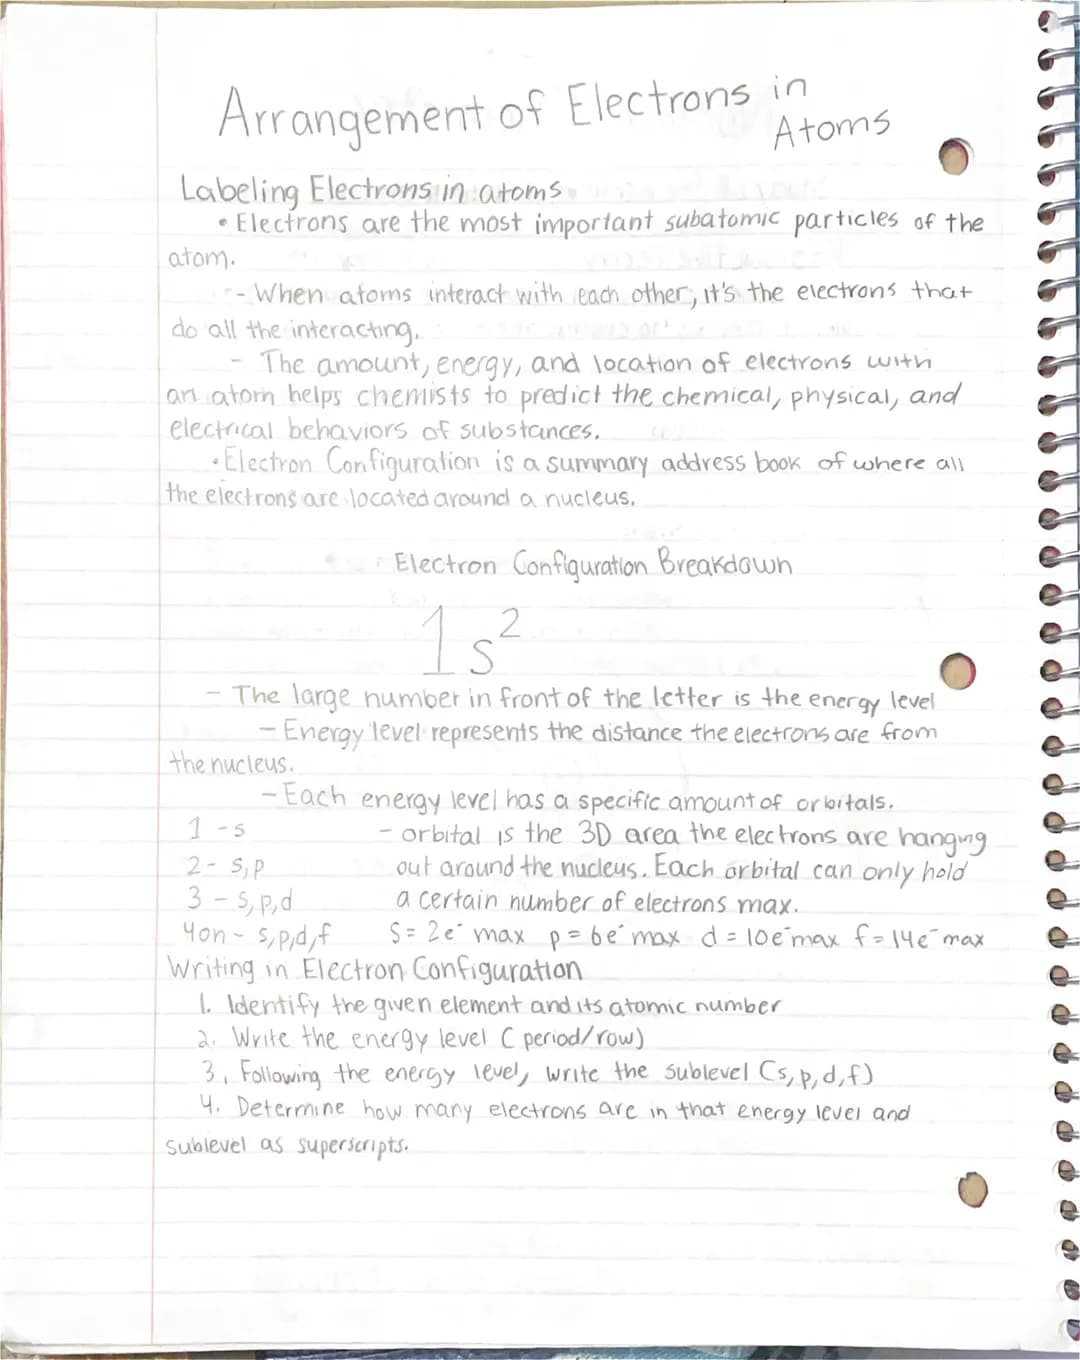 Arrangement of Electrons in
Atoms
Labeling Electrons in atoms
• Electrons are the most important subatomic particles of the
atom.
- When atoms interact with each other, it's the electrons that
do all the interacting.
- The amount, energy, and location of electrons with
an atom helps chemists to predict the chemical, physical, and
electrical behaviors of substances.
• Electron Configuration is a summary address book of where all
the electrons are located around a nucleus.
Electron Configuration Breakdown
1s²
- The large number in front of the letter is the energy level
- Energy level represents the distance the electrons are from
the nucleus.
- Each energy level has a specific amount of orbitals.
1 - s
2 - s, p
3 - s, p, d
4 on - s, p, d, f
- orbital is the 3D area the electrons are hanging
out around the nucleus. Each orbital can only hold
a certain number of electrons max.
S = 2e⁻ max p = 6e⁻ max d = 10e⁻ max f = 14e⁻ max
Writing in Electron Configuration
1. Identify the given element and its atomic number
2. Write the energy level (period/row)
3. Following the energy level, write the sublevel (s, p, d, f)
4. Determine how many electrons are in that energy level and
sublevel as superscripts.